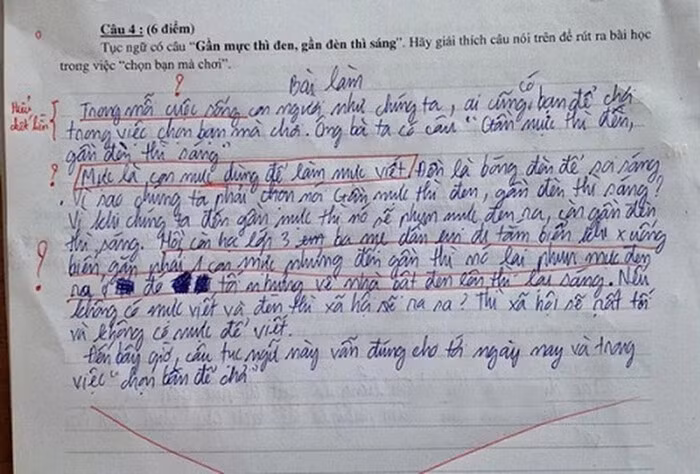 Câu 4 : (6 điểm)
Tục ngữ có câu “Gần mực thì đen, gần đèn thì sáng”. Hãy giải thích câu nói trên để rút ra bài học
trong việc “chọn bạn mà chơi”.
?
Bài làm
Trong mỗi cuộc sống con người như chúng ta, ai cũng có bạn để chơi
trong việc chọn bạn mà chơi. Ông bà ta có câu “Gần mực thì đen,
gần đèn thì sáng”
? Mực là con mực dùng để làm mực viết. Đèn là bóng đèn để ra sáng
. Vì sao chúng ta phải chọn nói Gần mực thì đen, gần đèn thì sáng?
Vì khi chúng ta đến gần mực thì nó sẽ phun mực đen ra, còn gần đèn
thì sáng. Hồi còn học lớp 3 em ba mẹ dẫn em đi tắm biển khi x uống
? biển gần phải 1 con mực nhưng đến gần thì nó lại phun mực đen
ra để tối nhưng về nhà bật đen lên thì lại sáng. Nếu
không có mực viết và đèn thì xã hội sẽ ra ra? Thì xã hội sẽ rất tối
và không có mực để viết.
Đến bây giờ, câu tục ngữ này vẫn đúng cho tới ngày nay và trong
việc “chọn bạn để chơi”